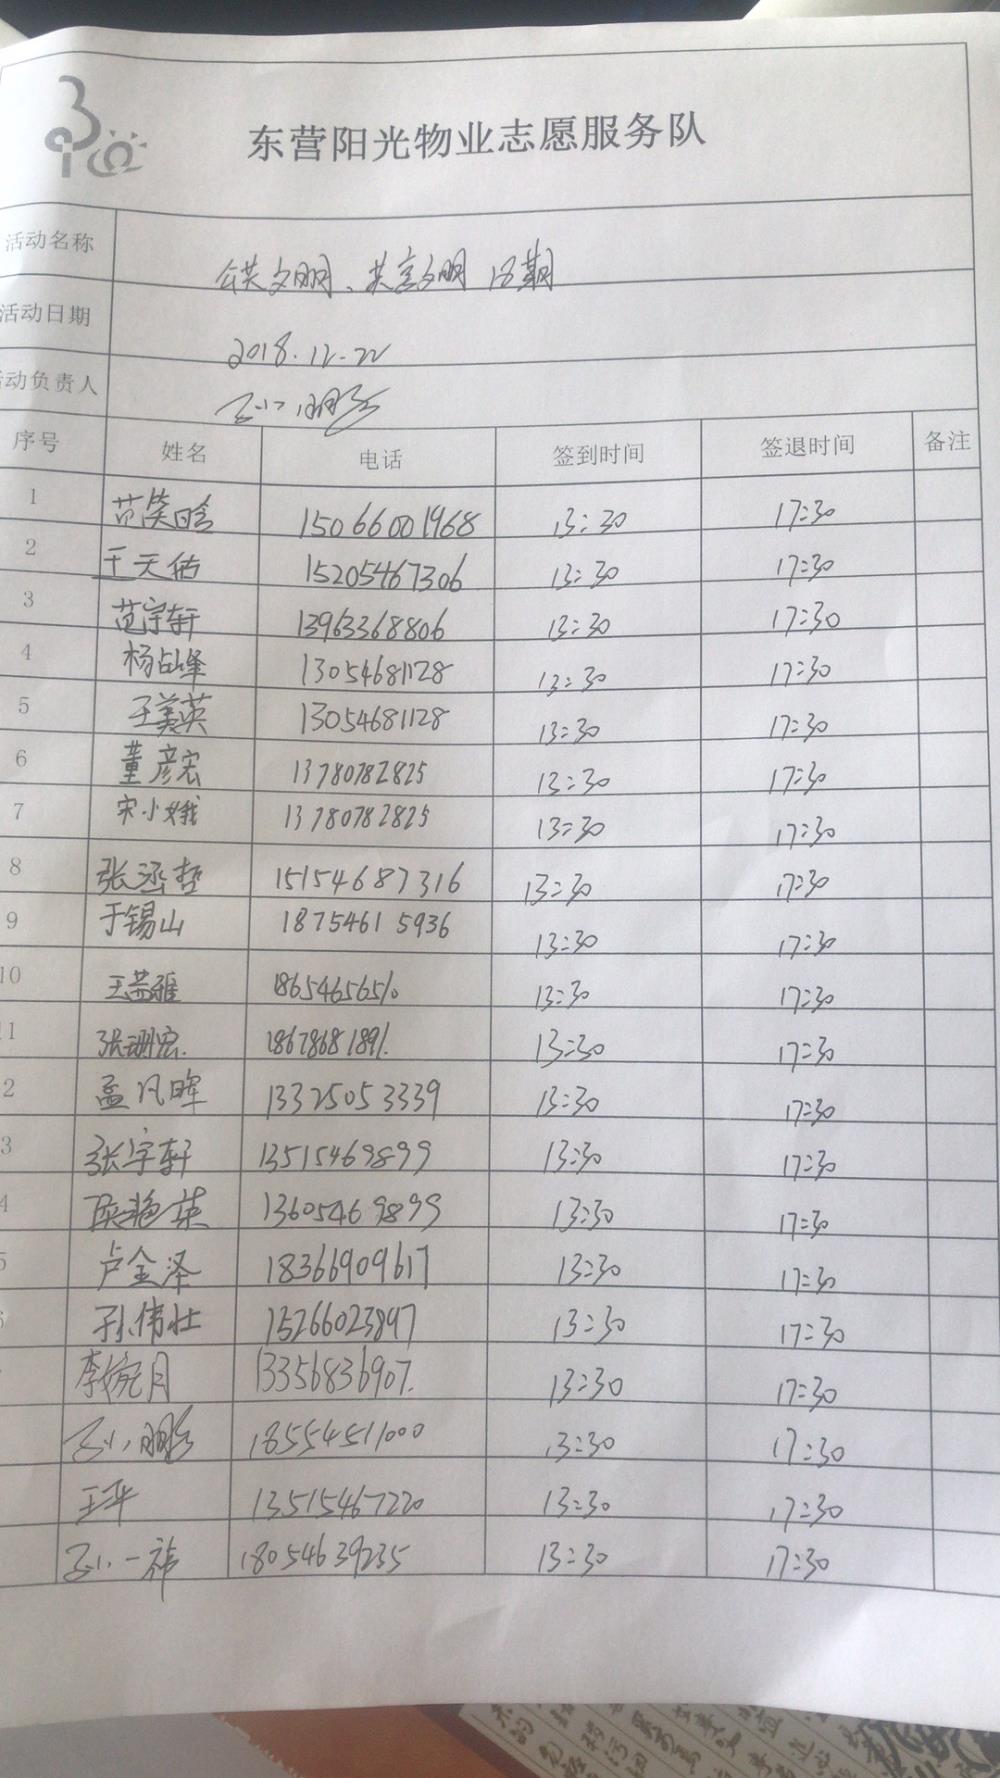 东营阳光物业志愿服务队
活动名称 公共文明、共享文明 18期
活动日期 2018.12.22
活动负责人 孙鹏
序号 姓名 电话 签到时间 签退时间 备注
1 范笑晗 15066001968 13:30 17:30
2 王天佑 15205467306 13:30 17:30
3 范宇轩 13963368806 13:30 17:30
4 杨占峰 13054681128 13:30 17:30
5 王美英 13054681128 13:30 17:30
6 董彦宏 13780782825 13:30 17:30
7 宋小娥 13780782825 13:30 17:30
8 张丞哲 15154687316 13:30 17:30
9 于锡山 18754615936 13:30 17:30
10 186546565 13:30 17:30
1 张珊宏 1867868189 13:30 17:30
2 孟凡晖 13325053339 13:30 17:30
3 张宇轩 13515469899 13:30 17:30
4 陈艳英 13605469899 13:30 17:30
5 卢金泽 18366909617 13:30 17:30
6 孙伟壮 15266023897 13:30 17:30
李婉月 13356836907 13:30 17:30
孙鹏 18554511000 13:30 17:30
王平 13515467220 13:30 17:30
孙一祎 18054639235 13:30 17:30